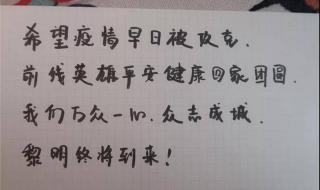 希望疫情早日被攻克.
前线英雄平安健康回家团圆.
我们万众一心.众志成城.
黎明终将到来!